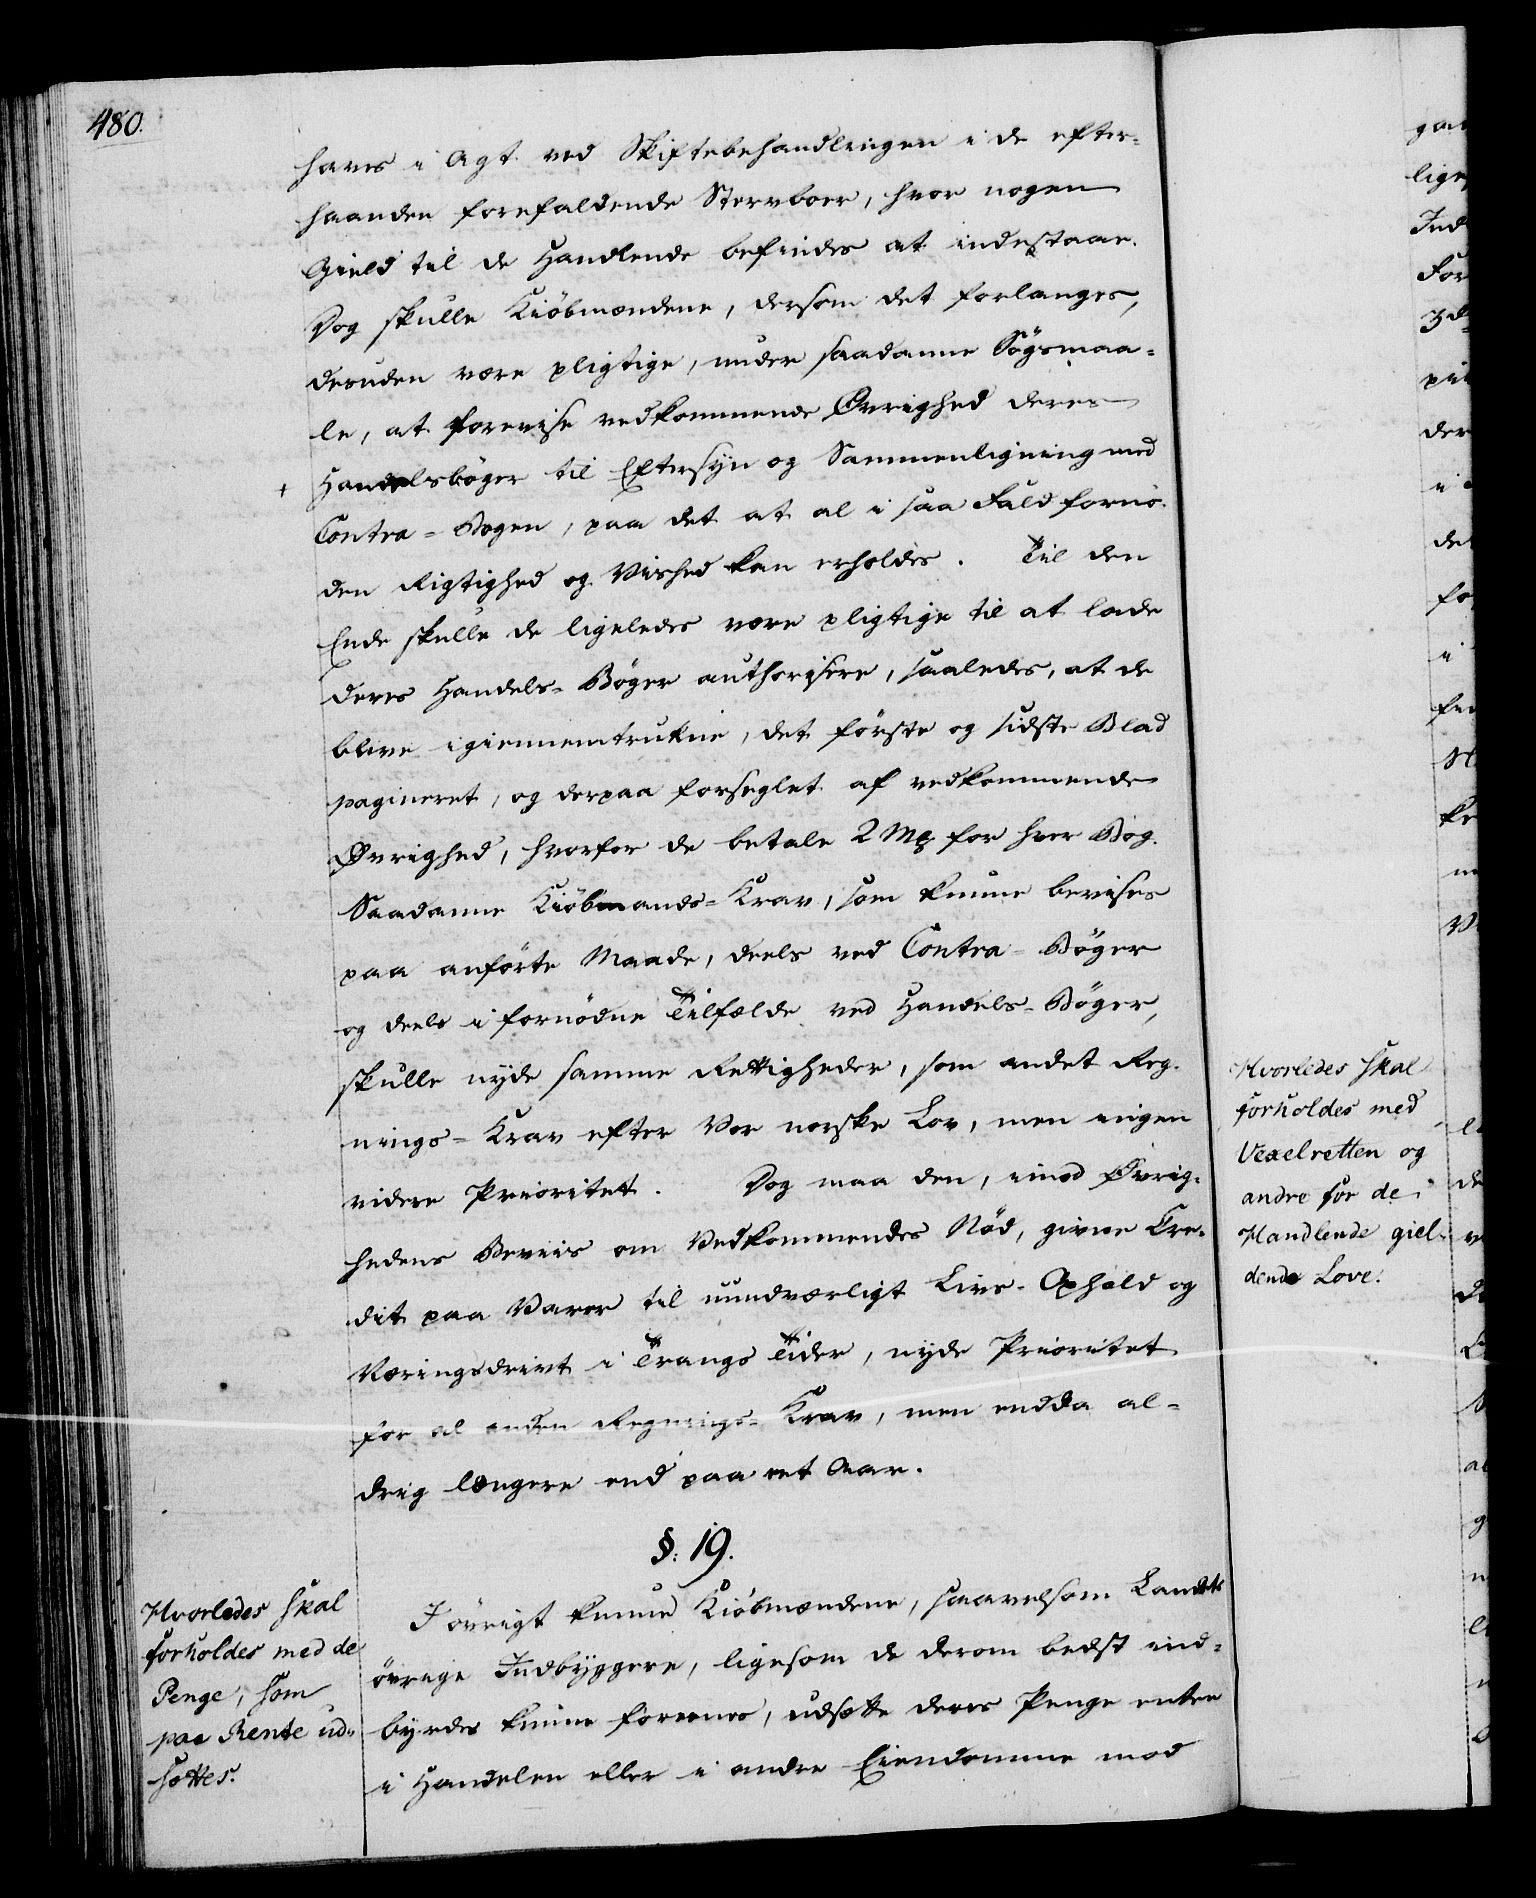 480.
haves i Agt ved Skiftebehandlingen i de efter-
haanden forefaldende Stervboer, hvor nogen
Gield til de Handlende befindes at indestaae.
Dog skulle Kiöbmændene, dersom det forlanges,
desuden være pligtige, under saadanne Sögsmaa-
le, at forevise vedkommende Øvrighed deres
+ Handelsböger til Eftersyn og Sammenligning med
Contra-Bogen, paa det at al i saa Fald fornö-
den Rigtighed og Vished kan erholdes. Til den
Ende skulle de ligeledes være pligtige til at lade
deres Handels-Böger authorisere, saaledes, at de
blive igiennemtrukne, det förste og sidste Blad
pagineret, og derpaa forseglet af vedkommende
Øvrighed, hvorfor de betale 2 Mk for hver Bog.
Saadanne Kiöbmands-Krav, som kunne bevises
paa anförte Maade, deels ved Contra-Böger
og deels i fornödne Tilfælde ved Handels-Böger,
skulle nyde samme Rettigheder, som andet Reg-
nings-Krav efter Vor norske Lov, men ingen
videre Prioritet. Dog maa den, imod Øvrig-
hedens Beviis om Vedkommendes Nöd, givne Cre-
dit paa Varer til uundværligt Livs-Ophold og
Næringsdrivt i Trangs Tider, nyde Prioritet
for al anden Regnings-Krav, men endda al-
drig længere end paa eet Aar.
§. 19.
Hvorledes skal
forholdes med de
Penge, som
paa Rente ud-
sættes.
I övrigt kunne Kiöbmændene, saavelsom Landets
övrige Indbyggere, ligesom de derom bedst ind-
byrdes kunne forenes, udsætte deres Penge enten
i Handelen eller i andre Eiendomme mod
Hvorledes skal
forholdes med
Vexelretten og
andre for de
Handlende giel-
dende Love.